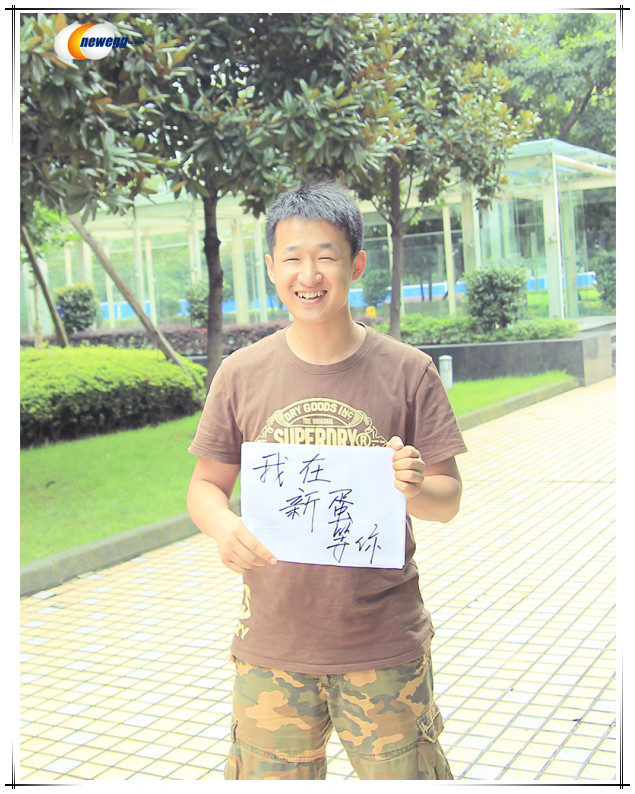 newegg
DRY GOODS INC
THE ORIGINAL
SUPERDRY®
我在
新蛋
等你
RY